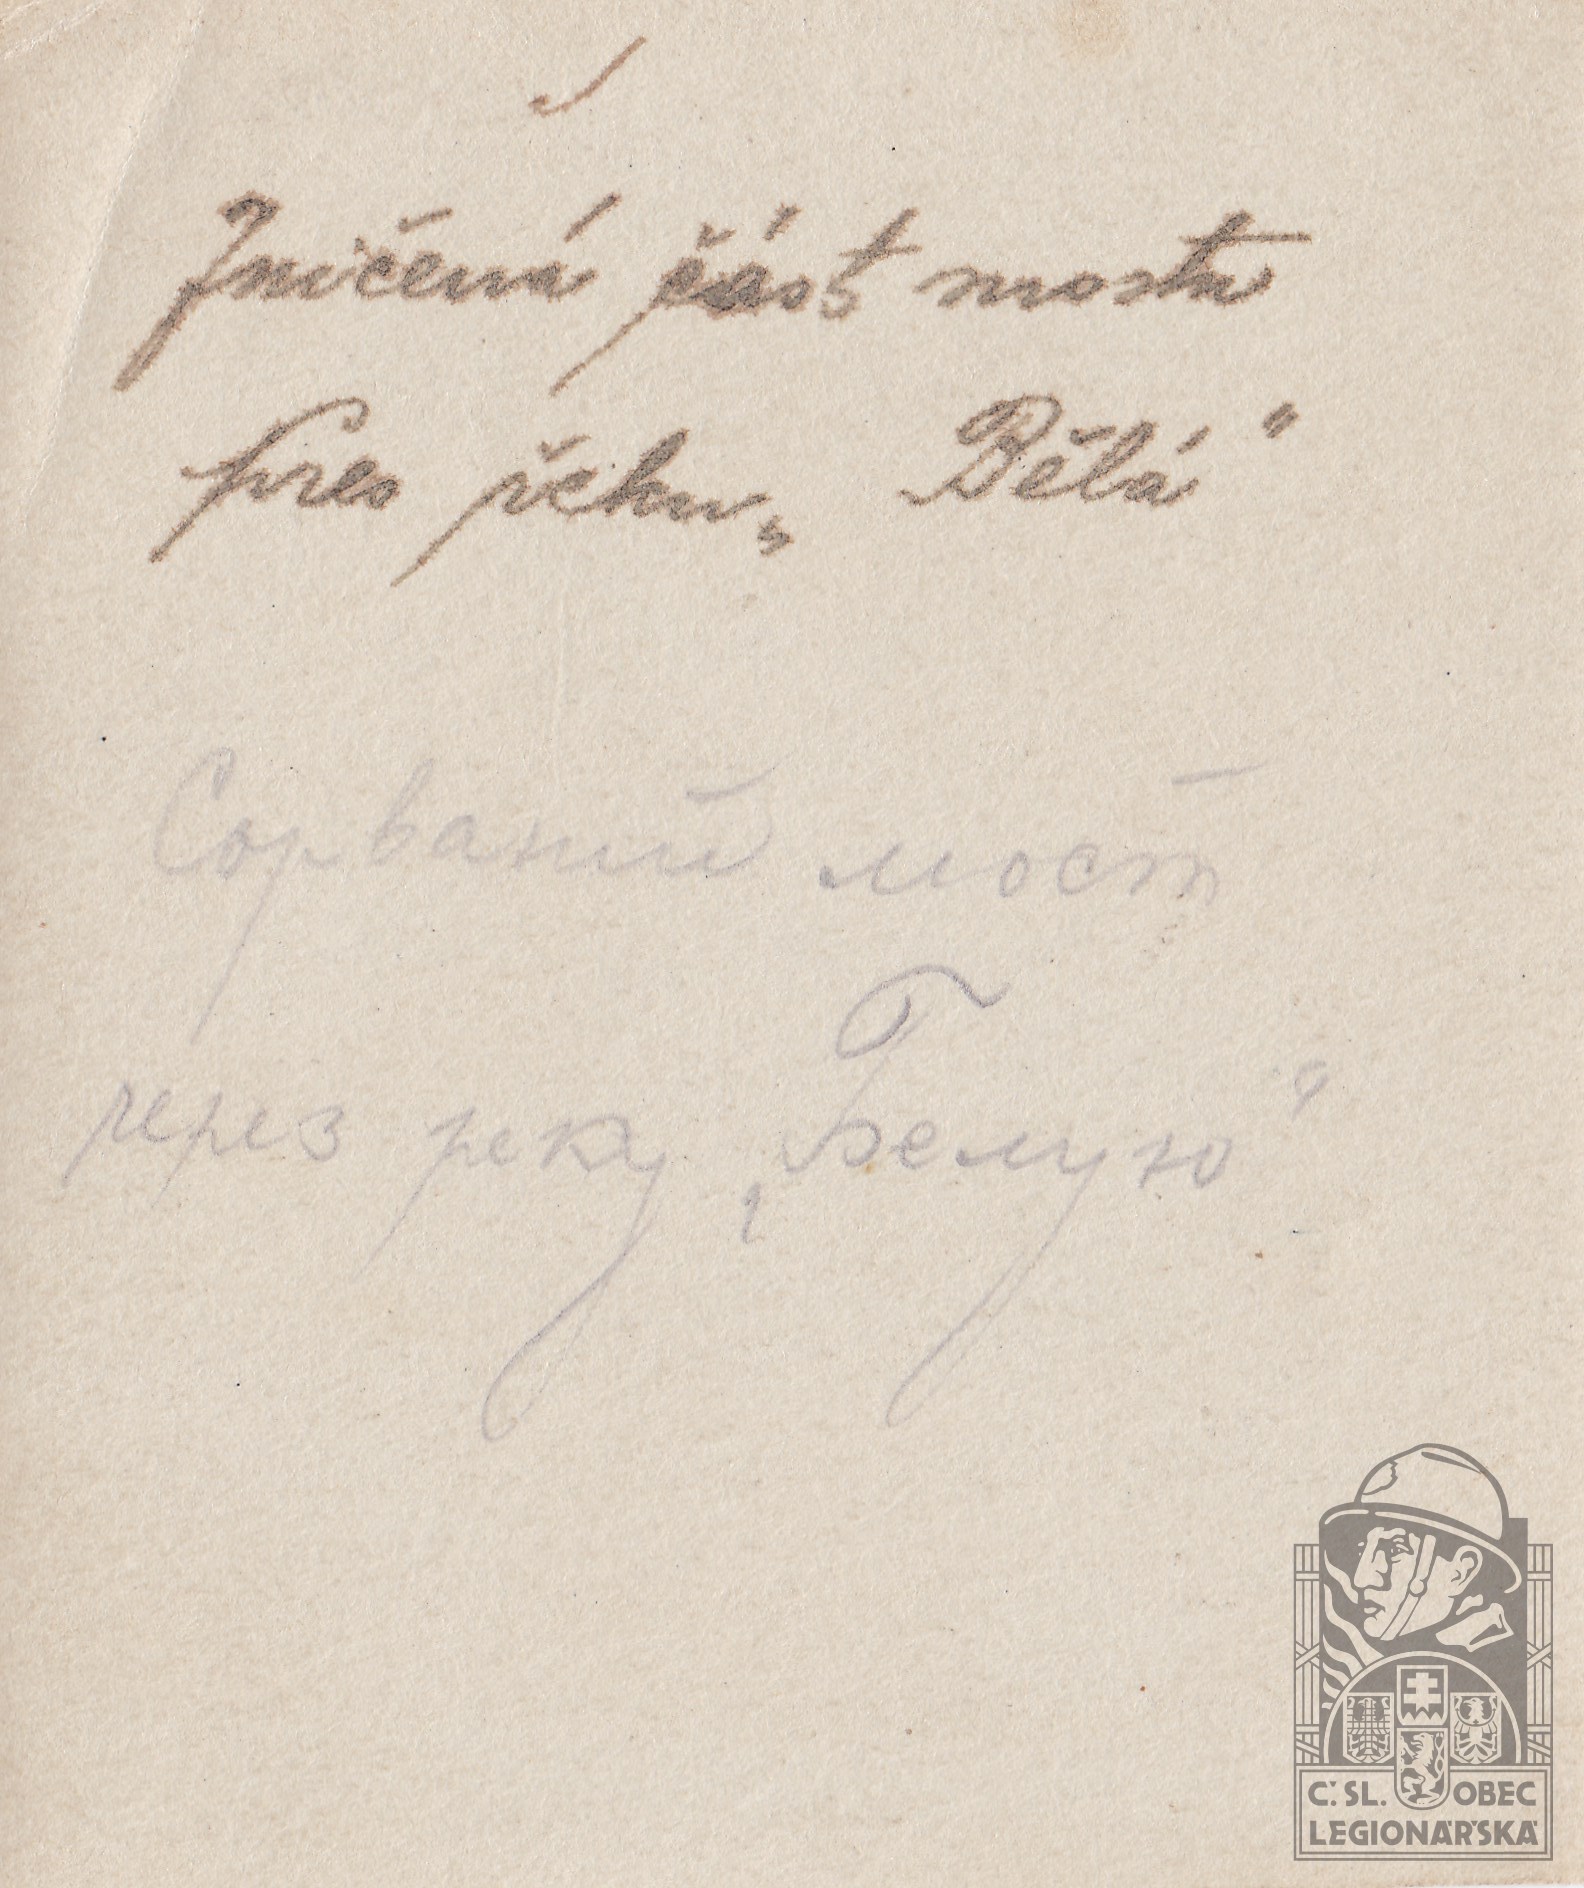 Zničená část mostu
pres řeku „Bělá“
Сорваний мост
через реку „Белую“
Č. SL. OBEC
LEGIONÁŘSKÁ